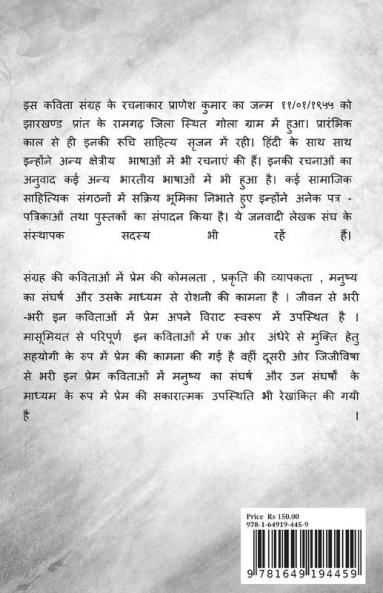 इस कविता संग्रह के रचनाकार प्राणेश कुमार का जन्म ११/०१/१९५५ को
झारखण्ड प्रांत के रामगढ़ जिला स्थित गोला ग्राम में हुआ। प्रारंभिक
काल से ही इनकी रूचि साहित्य सृजन में रही। हिंदी के साथ साथ
इन्होंने अन्य क्षेत्रीय भाषाओं में भी रचनाएं की हैं। इनकी रचनाओं का
अनुवाद कई अन्य भारतीय भाषाओं में भी हुआ है। कई सामाजिक
साहित्यिक संगठनों में सक्रिय भूमिका निभाते हुए इन्होंने अनेक पत्र -
पत्रिकाओं तथा पुस्तकों का संपादन किया है। ये जनवादी लेखक संघ के
संस्थापक सदस्य भी रहें हैं।
संग्रह की कविताओं में प्रेम की कोमलता , प्रकृति की व्यापकता , मनुष्य
का संघर्ष और उसके माध्यम से रोशनी की कामना है । जीवन से भरी
-भरी इन कविताओं में प्रेम अपने विराट स्वरूप में उपस्थित है ।
मासूमियत से परिपूर्ण इन कविताओं में एक ओर अंधेरे से मुक्ति हेतु
सहयोगी के रुप में प्रेम की कामना की गई है वहीं दूसरी ओर जिजीविषा
से भरी इन प्रेम कविताओं में मनुष्य का संघर्ष और उन संघर्षों के
माध्यम के रूप में प्रेम की सकारात्मक उपस्थिति भी रेखांकित की गयी
है ।
Price Rs 150.00
978-1-64919-445-9
9 781649 194459